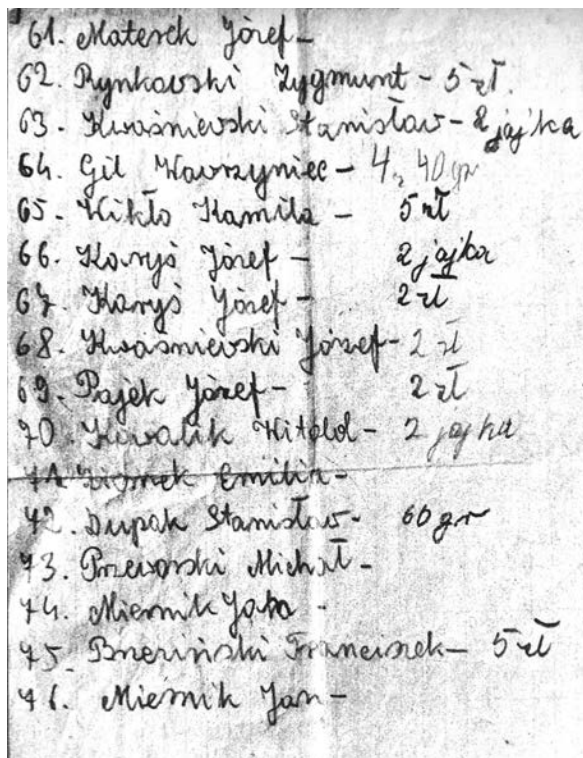 61. Materek Józef -
62. Rynkowski Zygmunt - 5 zł.
63. Kwaśniewski Stanisław - 2 jajka
64. Gil Wawrzyniec - 4, 40 gr
65 - Wikło Kamila - 5 zł
66. Karyś Józef - 2 jajka
67. Karyś Józef - 2 zł
68. Kwaśniewski Józef - 2 zł
69. Pająk Józef - 2 zł
70. Kowalik Witold - 2 jajka
71. Emilia -
72. Dupak Stanisław - 60 gr
73. Przeworski Michał -
74. Miernik -
75. Brzeziński Franciszek - 5 zł
76. Miernik Jan -